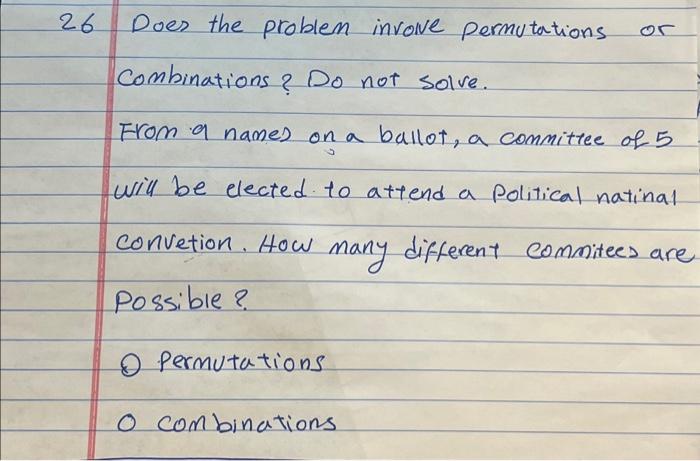 26 Does the problem involve permutations or
Combinations? Do not solve.
From 9 names on a ballot, a committee of 5
will be elected to attend a political natinal
convetion. How many different commitees are
Possible?
Permutations
combinations